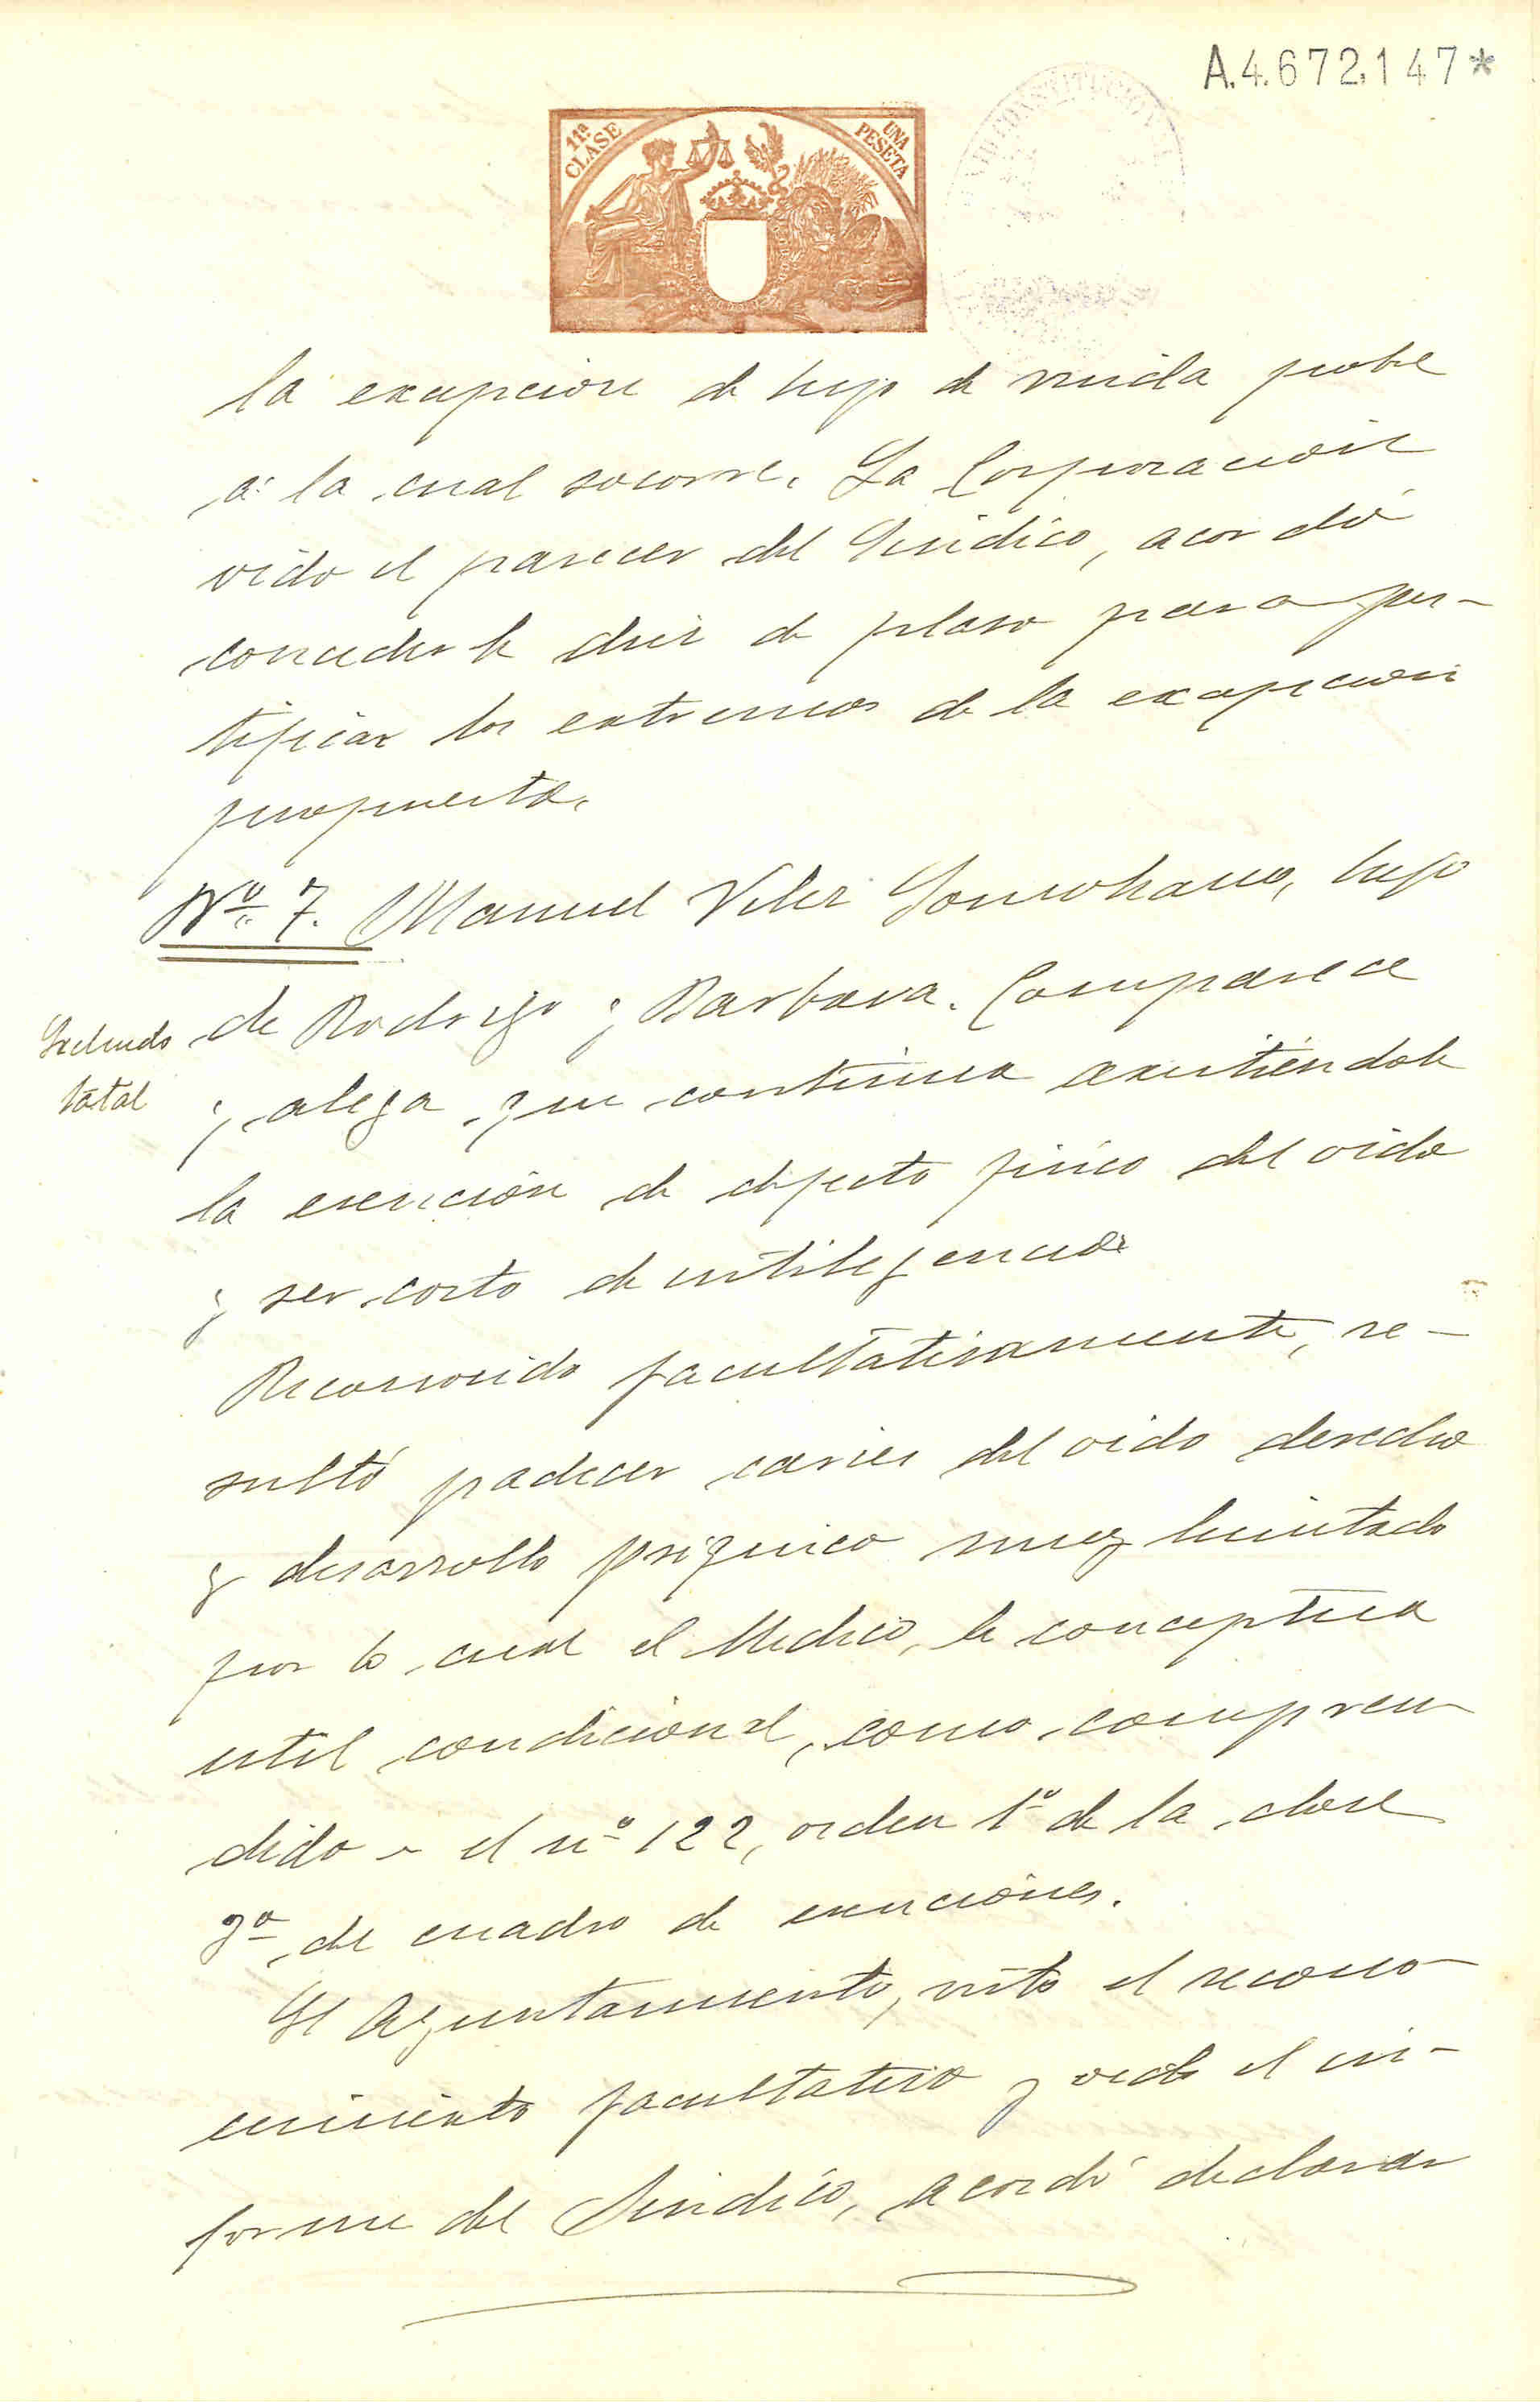 A.4.672.147*
11ª CLASE
UNA PESETA
CONSTITUCION
la excepcion de hijo de viuda pobre
á la cual socorre. La Corporacion
oido el parecer del Sindico, acordó
concederle diez de plazo para jus-
tificar los extremos de la excepcion
propuesta.
Nº 7. Manuel Velez hijo
de Rodrigo y Barbara. Comparece
Excluido
total
y alega que continua existiéndole
la exención de defecto fisico del oido
y ser corto de inteligencia
Reconocido facultativamente, re-
sultó padecer caries del oido derecho
y desarrollo psiquico muy limitado
por lo cual el Medico, le conceptua
util condicional, como compren
dido en el nº 122, orden 1º de la clase
3ª del cuadro de exenciones.
El Ayuntamiento, visto el recono
cimiento facultativo y oido el in-
forme del Sindico, acordó declarar